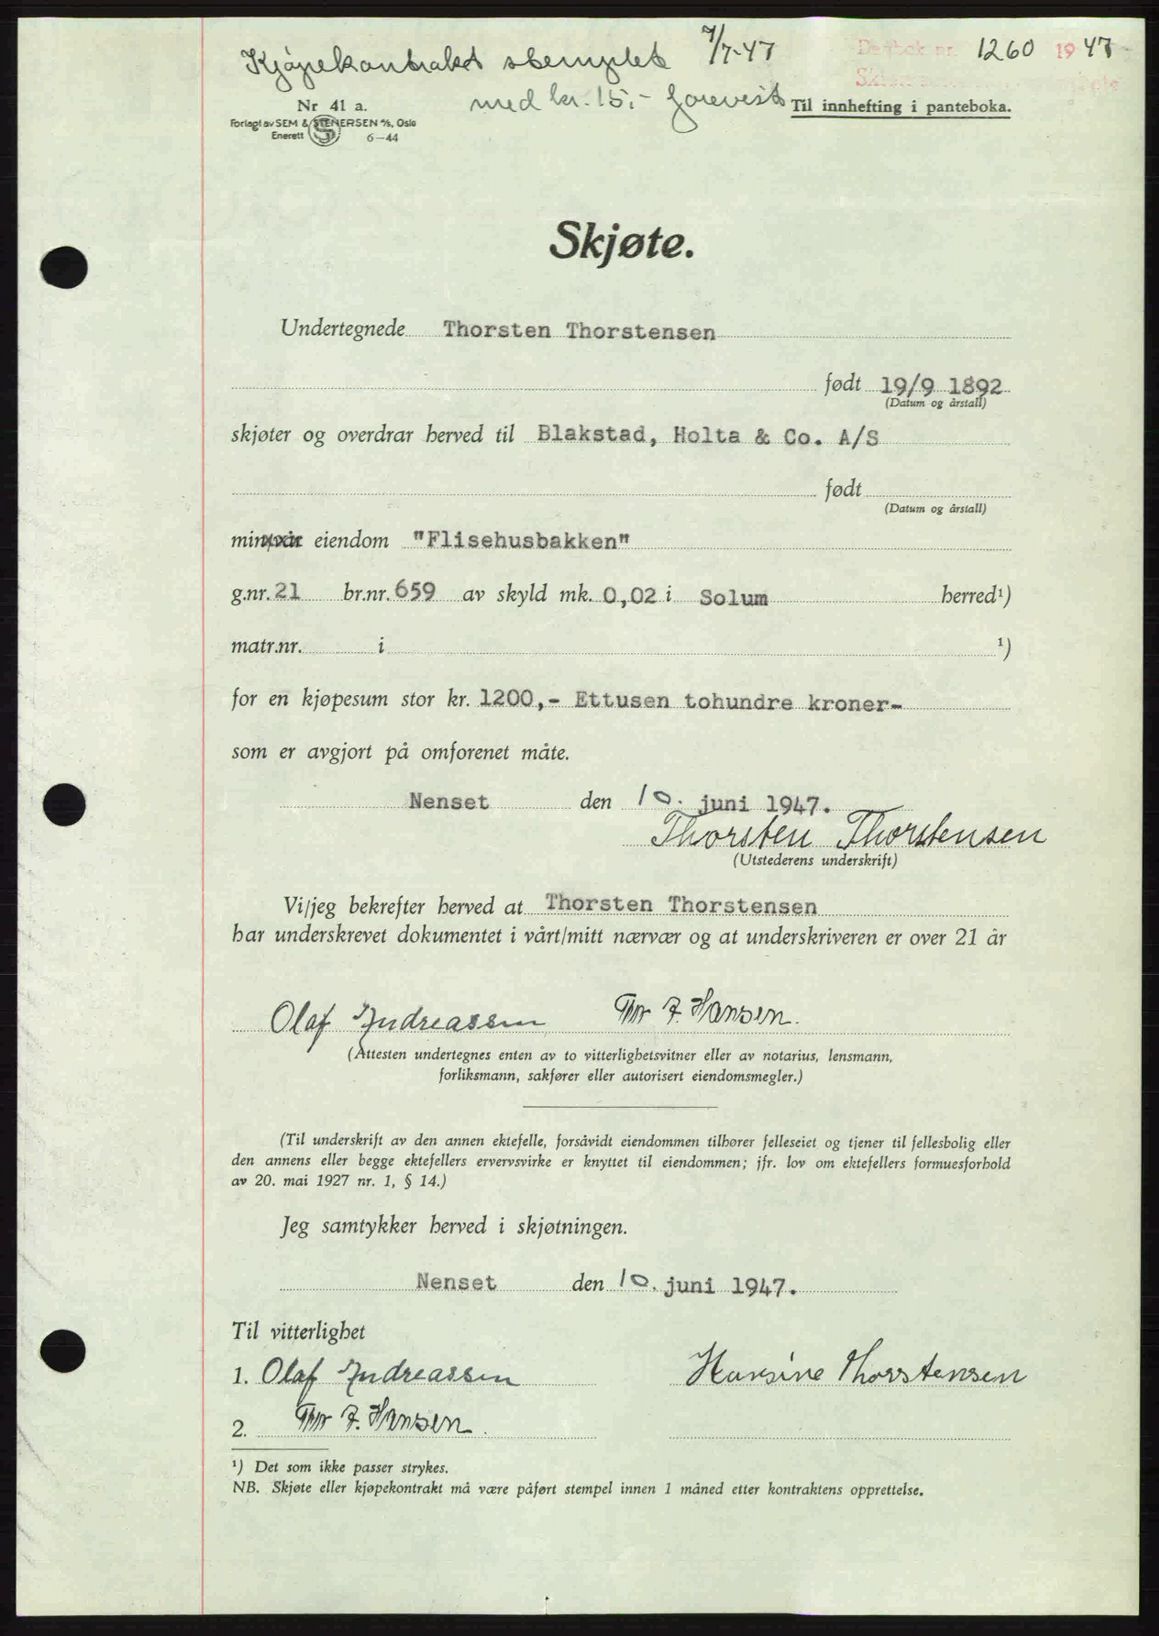 Kjøpekontrakt stemplet 7/7-47
med kr. 15,- forevist
Dagbok nr. 1260 1947
Nr 41 a.
Forlagt av SEM & STENERSEN A/S, Oslo
Enerett 6-44
Til innhefting i panteboka.
Skjøte.
Undertegnede Thorsten Thorstensen
født 19/9 1892
(Datum og årstall)
skjøter og overdrar herved til Blakstad, Holta & Co. A/S
født
(Datum og årstall)
min/vår eiendom "Flisehusbakken"
g.nr. 21 br.nr. 659 av skyld mk. 0,02 i Solum herred¹)
matr.nr. i ¹)
for en kjøpesum stor kr. 1200,- Ettusen tohundre kroner-
som er avgjort på omforenet måte.
Nenset den 10. juni 1947.
Thorsten Thorstensen
(Utstederens underskrift)
Vi/jeg bekrefter herved at Thorsten Thorstensen
har underskrevet dokumentet i vårt/mitt nærvær og at underskriveren er over 21 år
Olaf Andreassen Thor F. Hansen.
(Attesten undertegnes enten av to vitterlighetsvitner eller av notarius, lensmann,
forliksmann, sakfører eller autorisert eiendomsmegler.)
(Til underskrift av den annen ektefelle, forsåvidt eiendommen tilhører felleseiet og tjener til fellesbolig eller
den annens eller begge ektefellers ervervsvirke er knyttet til eiendommen; jfr. lov om ektefellers formuesforhold
av 20. mai 1927 nr. 1, § 14.)
Jeg samtykker herved i skjøtningen.
Nenset den 10. juni 1947.
Til vitterlighet
1. Olaf Andreassen Hansine Thorstensen
2. Thor F. Hansen.
¹) Det som ikke passer strykes.
NB. Skjøte eller kjøpekontrakt må være påført stempel innen 1 måned etter kontraktens opprettelse.